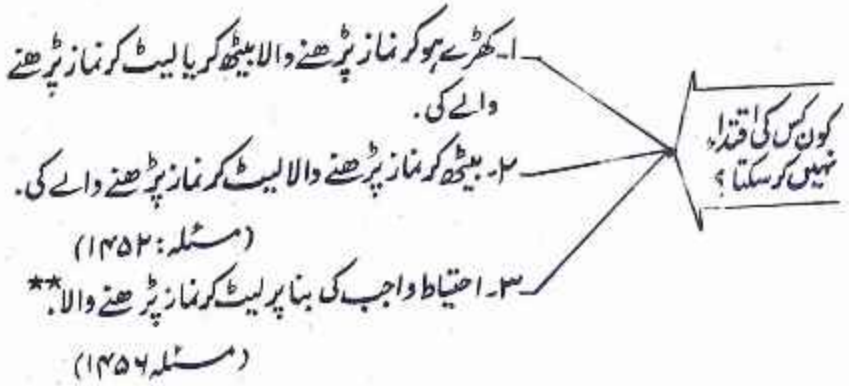 کون کس کی اقتداء
نہیں کر سکتا ؟
۱۔ کھڑے ہو کر نماز پڑھنے والا بیٹھ کر یا لیٹ کر نماز پڑھنے
والے کی۔
۲۔ بیٹھ کر نماز پڑھنے والا لیٹ کر نماز پڑھنے والے کی۔
(مسئلہ: ۱۴۵۲)
۳۔ احتیاط واجب کی بنا پر لیٹ کر نماز پڑھنے والا۔**
(مسئلہ ۱۴۵۶)